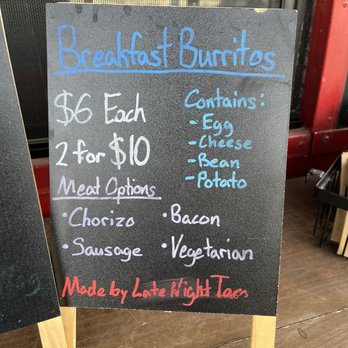 Breakfast Burritos
$6 Each
2 for $10
Contains:
- Egg
- Cheese
- Bean
- Potato
Meat Options
• Chorizo
• Bacon
• Sausage
• Vegetarian
Made by Late Night Tacos